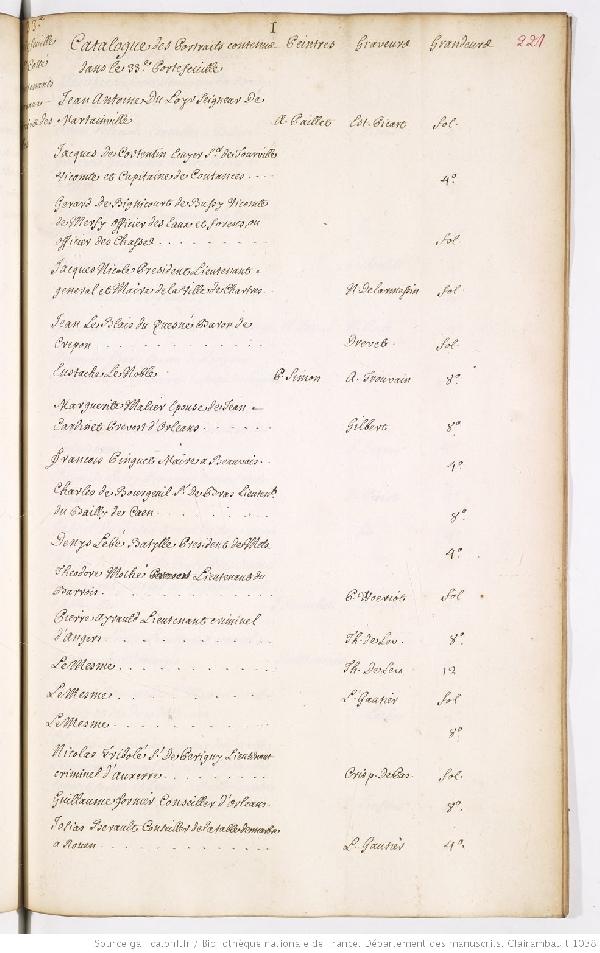 1
221
Catalogue des Portraits contenus Peintres Graveurs Grandeurs
dans le 33.e Portefeuille
Jean Antoine Du Loys Seigneur De
A. Paillet Est. Picart fol.
Jacques de Costentin Ecuyer S.r de Tourville
Vicomte et Capitaine de Coutances 4.o
Gerard de Bignicourt de Bussy Vicomte
de Mersy officier des Eaux et forests, ou
officier des Chasses fol.
Jacques Nicole President Lieutenant
general et Maire de la Ville de Chartres N. Delarmessin fol.
Jean Le Blais du Quesné Baron de
Crepon Drevet. fol.
Eustache Le Noble P. Simon A. Trouvain 8.o
Marguerite Malier Epouse de Jean
Cardinet Prevost d'Orleans Gilbert 8.o
François Pinguet Maire a Beauvais 4.o
Charles de Bourgueil S.r de Bras Lieuten.t
du Bailly de Caen 8.o
Denys Lebé Batylle President de Mets. 4.o
Theodore Lieutenant du
Barrois P. Woeriot fol.
Pierre Ayrault Lieutenant criminel
d'Angers Th. de Leu. 8.o
Le Mesme Th. De Leu 12
Le Mesme L. Gautier fol
Le Mesme 8.o
Nicolas Tridolé S.r De Perigny Lieutenant
criminel d'Auxerre Crisp. De Pas. fol.
Guillaume fornier Conseiller d'Orleans 8.o
Josias Berault Conseiller de la table de marbre
a Rouen L. Gautier 4.o
Source gallica.bnf.fr / Bibliothèque nationale de France. Département des manuscrits. Clairambault 1038